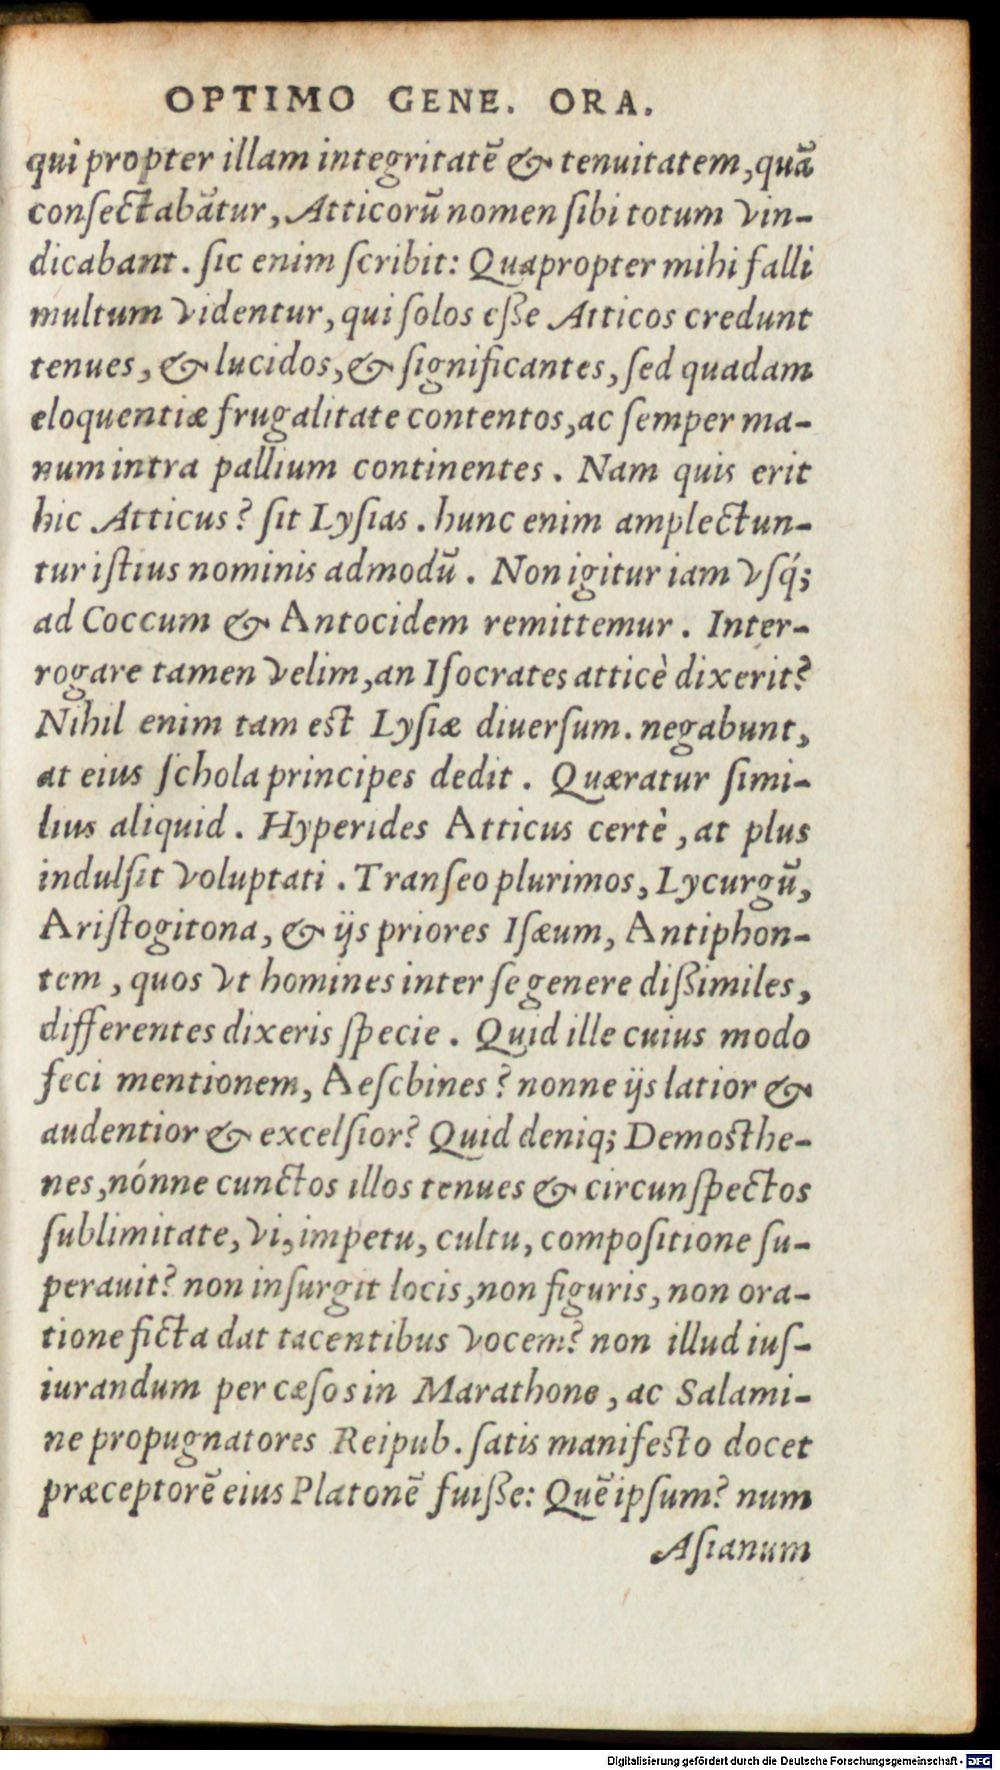 OPTIMO GENE. ORA.
qui propter illam integritatē & tenuitatem, quā
conſectabātur, Atticorū nomen ſibi totum vin-
dicabant. ſic enim ſcribit: Quapropter mihi falli
multum videntur, qui ſolos eſſe Atticos credunt
tenues, & lucidos, & ſignificantes, ſed quadam
eloquentiæ frugalitate contentos, ac ſemper ma-
num intra pallium continentes. Nam quis erit
hic Atticus? ſit Lyſias. hunc enim amplectun-
tur iſtius nominis admodū. Non igitur iam vſq́;
ad Coccum & Antocidem remittemur. Inter-
rogare tamen velim, an Iſocrates atticè dixerit?
Nihil enim tam eſt Lyſiæ diuerſum. negabunt,
at eius ſchola principes dedit. Quæratur ſimi-
lius aliquid. Hyperides Atticus certè, at plus
indulſit voluptati. Tranſeo plurimos, Lycurgū,
Ariſtogitona, & ijs priores Iſæum, Antiphon-
tem, quos vt homines inter ſe genere diſſimiles,
differentes dixeris ſpecie. Quid ille cuius modo
feci mentionem, Aeſcbines? nonne ijs latior &
audentior & excelſior? Quid deniq; Demoſthe-
nes, nónne cunctos illos tenues & circunſpectos
ſublimitate, vi, impetu, cultu, compoſitione ſu-
perauit? non inſurgit locis, non figuris, non ora-
tione ficta dat tacentibus vocem? non illud iuſ-
iurandum per cæſos in Marathone, ac Salami-
ne propugnatores Reipub. ſatis manifeſto docet
præceptorē eius Platonē fuiſſe: Quē ipſum? num
Aſianum
Digitalisierung gefördert durch die Deutsche Forschungsgemeinschaft - DFG